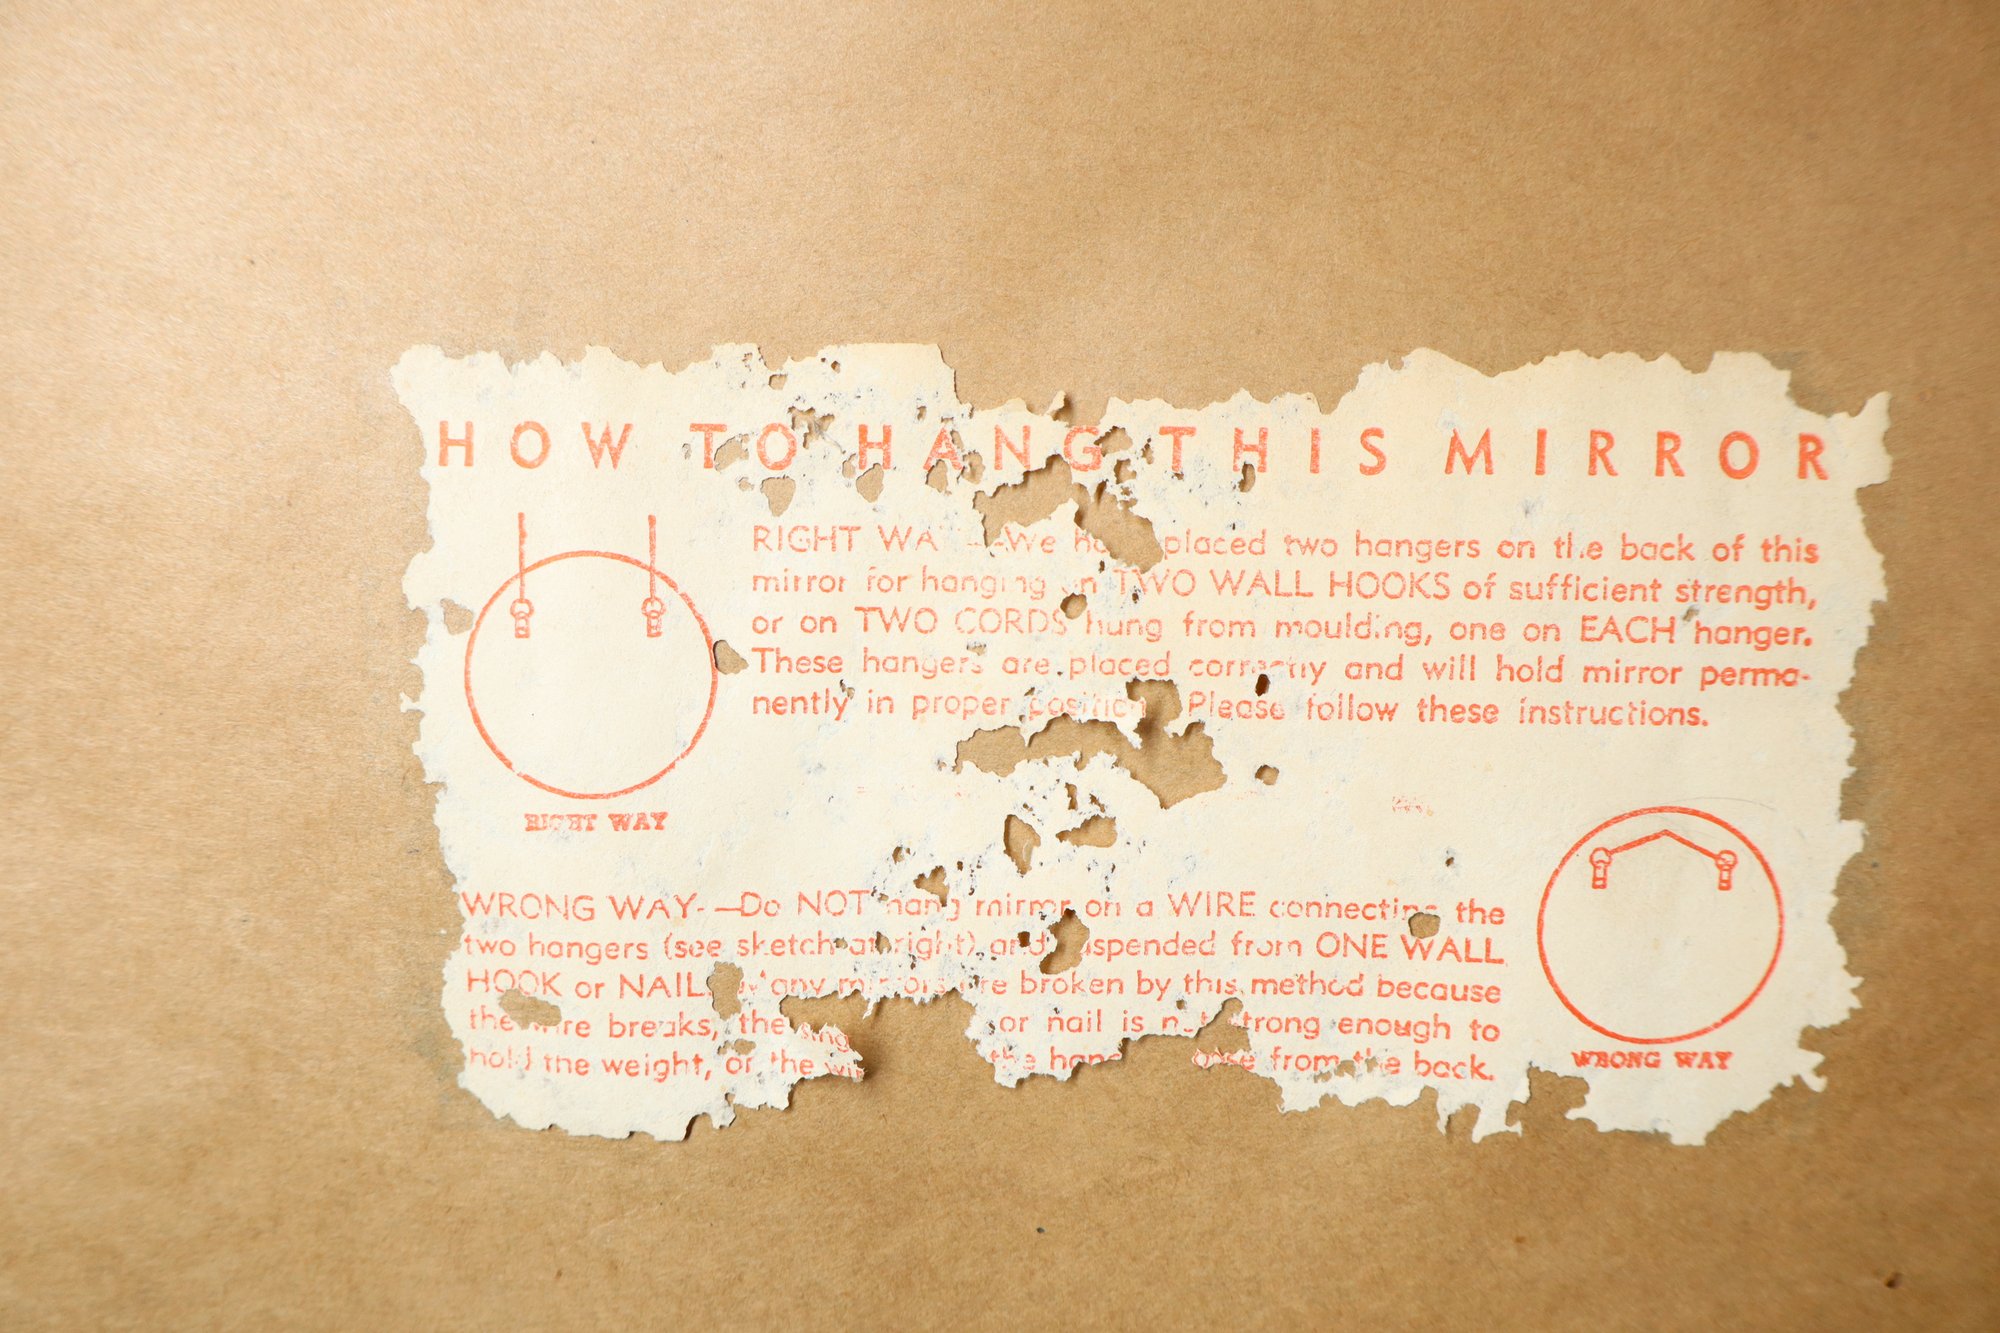 HOW TO HANG THIS MIRROR
RIGHT WAY—We have placed two hangers on the back of this
mirror for hanging on TWO WALL HOOKS of sufficient strength,
or on TWO CORDS hung from moulding, one on EACH hanger.
These hangers are placed correctly and will hold mirror perma-
nently in proper position. Please follow these instructions.
RIGHT WAY
WRONG WAY—Do NOT hang mirror on a WIRE connecting the
two hangers (see sketch at right) and suspended from ONE WALL
HOOK or NAIL. Many mirrors are broken by this method because
the wire breaks, the single or nail is not strong enough to
hold the weight, or the the from the back.
WRONG WAY